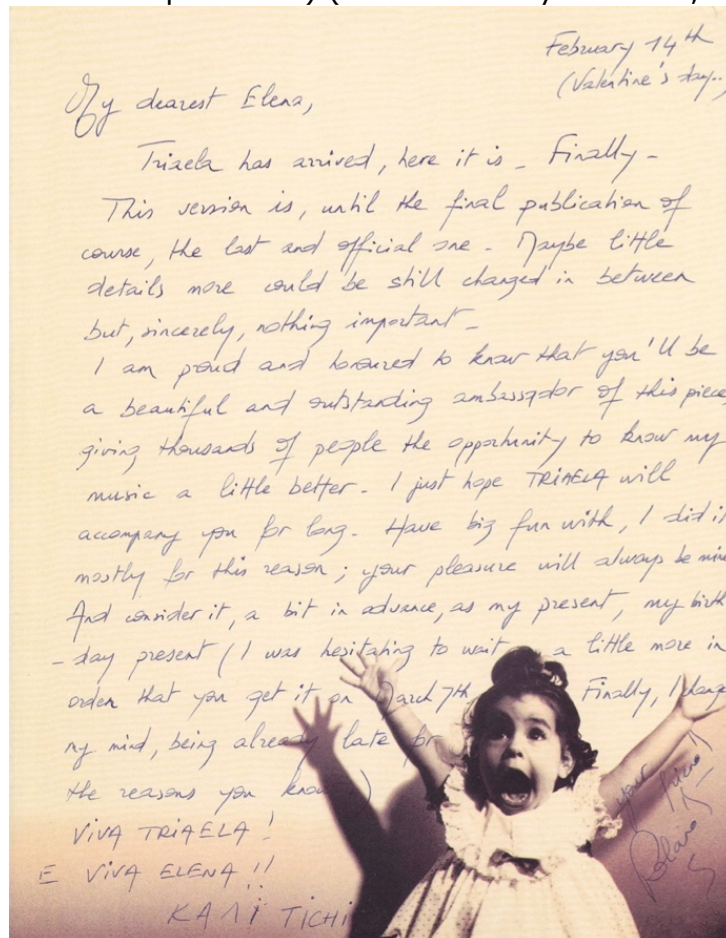 February 14th
(Valentine's day..
My dearest Elena,
Triaela has arrived, here it is _ Finally _
This version is, until the final publication of
course, the last and official one _ Maybe little
details more could be still changed in between
but, sincerely, nothing important _
I am proud and honoured to know that you'll be
a beautiful and outstanding ambassador of this piece,
giving thousands of people the opportunity to know my
music a little better _ I just hope TRIAELA will
accompany you for long _ Have big fun with, I did it
mostly for this reason ; your pleasure will always be mine
And consider it, a bit in advance, as my present, my birth
_ day present (I was hesitating to wait a little more in
order that you get it on March 7th Finally, I change
my mind, being already late for
the reasons you know)
VIVA TRIAELA !
E VIVA ELENA !!
TICHI
your friend
Roland